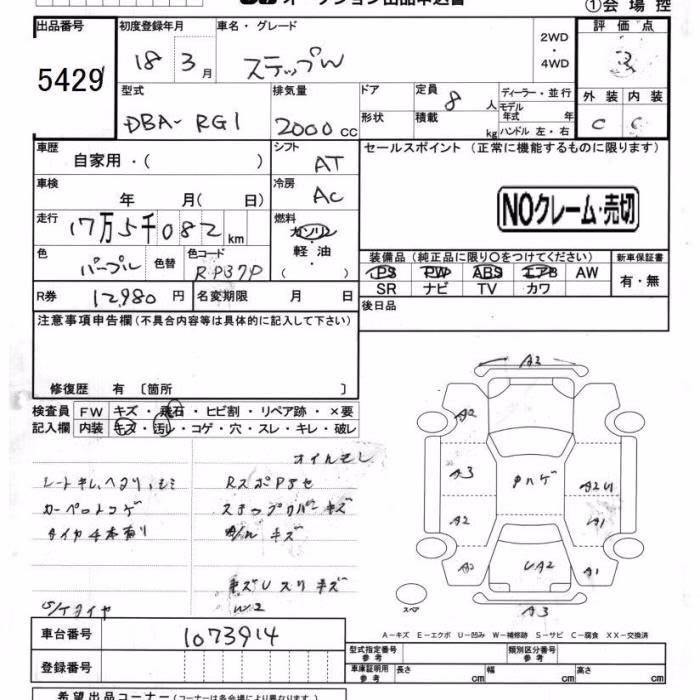 オークション出品申込書
①会場控
出品番号
初度登録年月
車名・グレード
2WD
・
4WD
評価点
5429
18年 3月
ステップW
3
型式
排気量
ドア
定員
8人
ディーラー・並行
外装 内装
DBA-RG1
2000cc
形状
積載
kg
モデル年式 年
ハンドル 左・右
C C
車歴
自家用・( )
シフト
AT
セールスポイント (正常に機能するものに限ります)
車検
年 月( 日)
冷房
AC
NOクレーム・売切
走行
17万5千082km
燃料
ガソリン
軽油
( )
色
パープル
色替
色コード
RP37P
装備品 (純正品に限り○をつけてください)
新車保証書
PS PW ABS エアB AW
有・無
SR ナビ TV カワ
R券
12,980円
名変期限 月 日
後日品
注意事項申告欄(不具合内容等は具体的に記入して下さい)
修復歴 有 [箇所 ]
検査員
記入欄
FW キズ・飛石・ヒビ割・リペア跡・×要
内装 キズ・汚れ・コゲ・穴・スレ・キレ・破レ
オイルモレ
カーペットコゲ
タイヤ4本有り
キズ
キズ
W2
S/Tタイヤ
A3
A2
A3
A2
A2
A2
A1
A1
UA2
A3
スペア
A-キズ E-エクボ U-凹み W-補修跡 S-サビ C-腐食 XX-交換済
車台番号
1073914
登録番号
型式指定番号
参考
類別区分番号
参考
車庫証明用
参考
長さ cm 幅 cm 高さ cm
希望出品コーナー(コーナーは各会場により異なります)